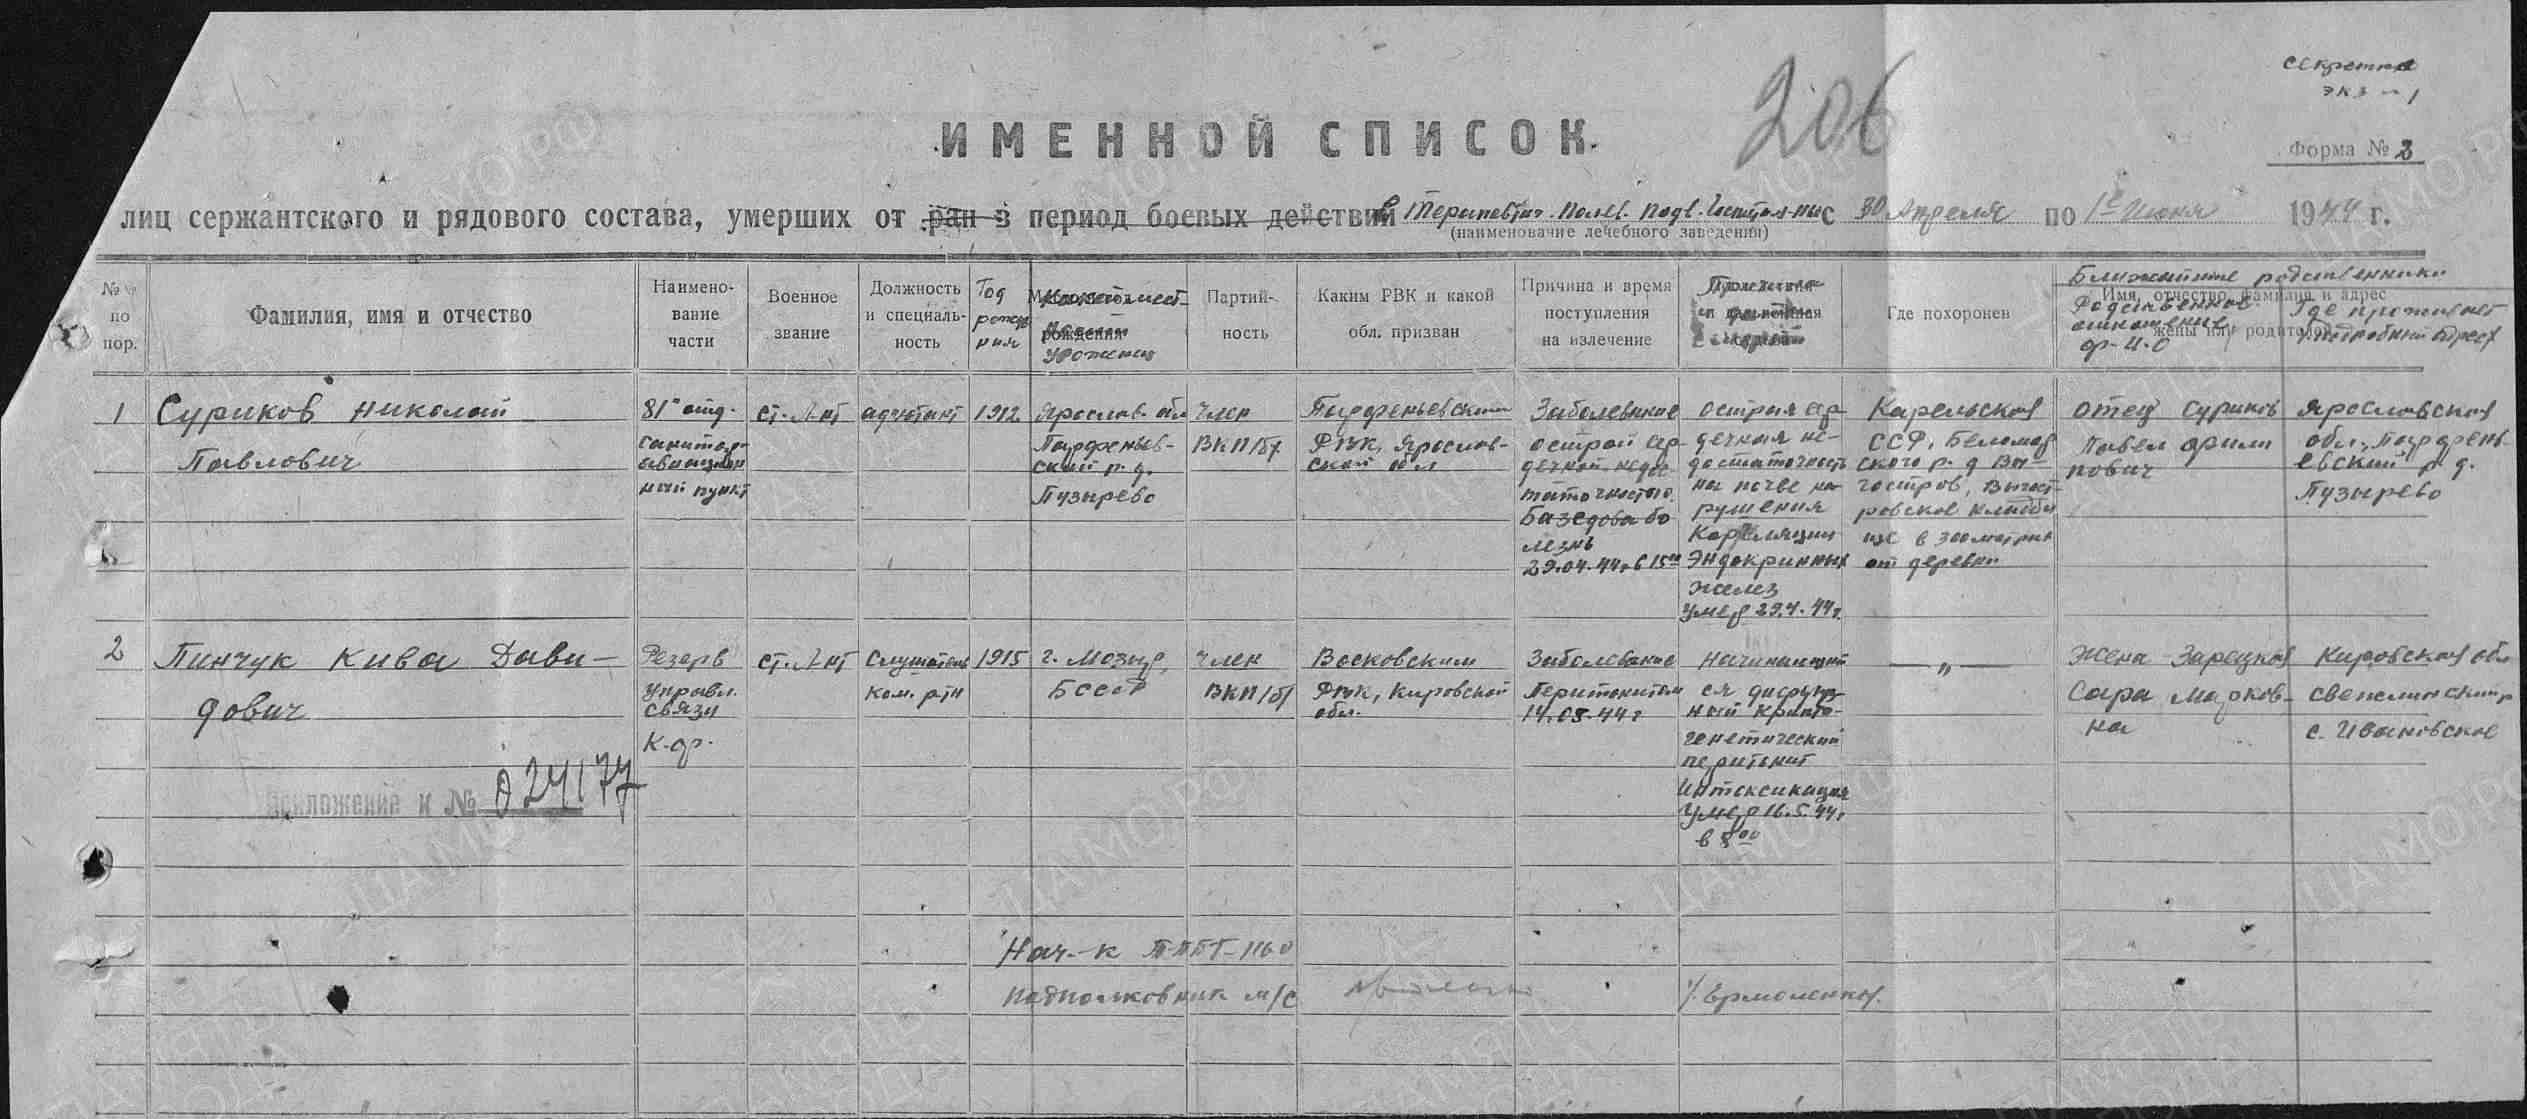 секретно
экз - 1
206
ИМЕННОЙ СПИСОК
Форма № 2
лиц сержантского и рядового состава, умерших от ран в период боевых действий в Терапевтич. Полев. Подв. Госпитале с 30 Апреля по 1е Июня 1944 г.
(наименование лечебного заведения)
№№ по пор.
Фамилия, имя и отчество
Наимено-
вание
части
Военное
звание
Должность
и специаль-
ность
Год
рожде
ния
рождения
уроженец
Партий-
ность
Каким РВК и какой
обл. призван
Причина и время
поступления
на излечение
Где похоронен
Ближайшие родственники
Имя, отчество, фамилия и адрес
жены или родителей
Родственное
отношение
ф-И-О
Где проживает
подробный адрес
1
Суриков Николай
Павлович
81й отд.
санитар-
авиацион
ный пункт
ст. Л-нт
адъютант
1912
Ярослав. обл
Парфеньев-
ский р. д.
Пузырево
член
ВКП/б/
Парфеньевским
РВК, Ярослав-
ской обл
Заболевание
острой сер-
дечной недос-
таточностью.
Базедова бо
лезнь
29.04.44г в 15 00
острая сер-
дечная не-
достаточность
на почве на-
рушения
Корреляции
Эндокринных
желез
Умер 29.4.44г.
Карельская
ССР, Беломор
ского р. д Вы-
гостров, Выгост-
ровское кладби
ще в 300 метрах
от деревни
отец Суриков
Павел Фили
пович
Ярославская
обл., Парфень-
евский р д.
Пузырево
2
Пинчук Кива Дави-
дович
Резерв
управл.
связи
К-ф.
ст. Л-нт
слушатель
ком. р-ты
1915
г. Мозырь,
БССР
член
ВКП/б/
РВК, Кировской
обл.
Заболевание
Перитонитом
14.05.44г
начинающий
ся диффуз-
ный крипто-
генетический
перитонит
Интоксикация
Умер 16.5.44г
в 8 00
— „ —
жена Зарецкая
Сара Марков-
на
Кировская обл
с. Ивановское
Приложение к № 024177
Нач-к ТППГ-1160
подполковник м/с
/Ермоленко/.